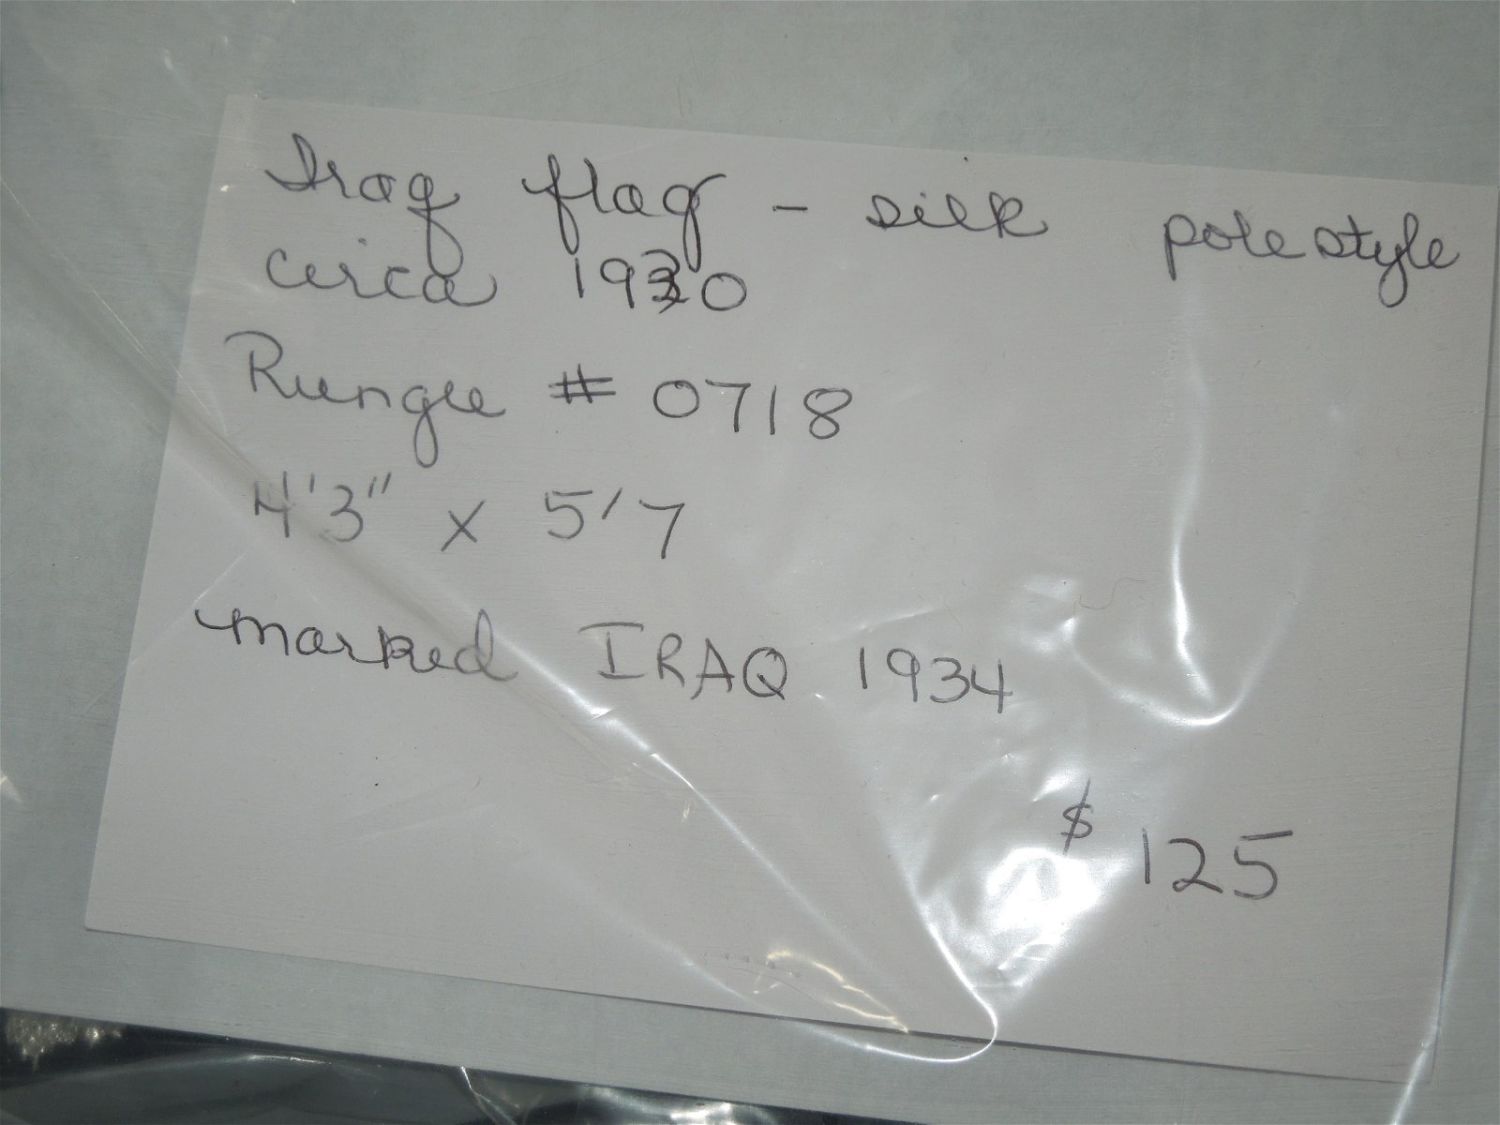 Iraq flag - silk pole style
circa 1930
Rungee # 0718
4'3" x 5'7
marked IRAQ 1934
$ 125